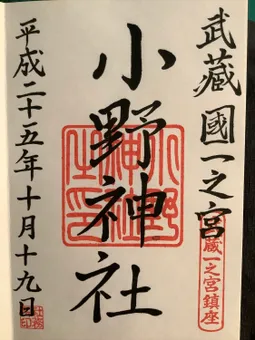 武藏國一之宮
武蔵一之宮鎮座
小野神社
小野神社之印
平成二十五年十月十九日